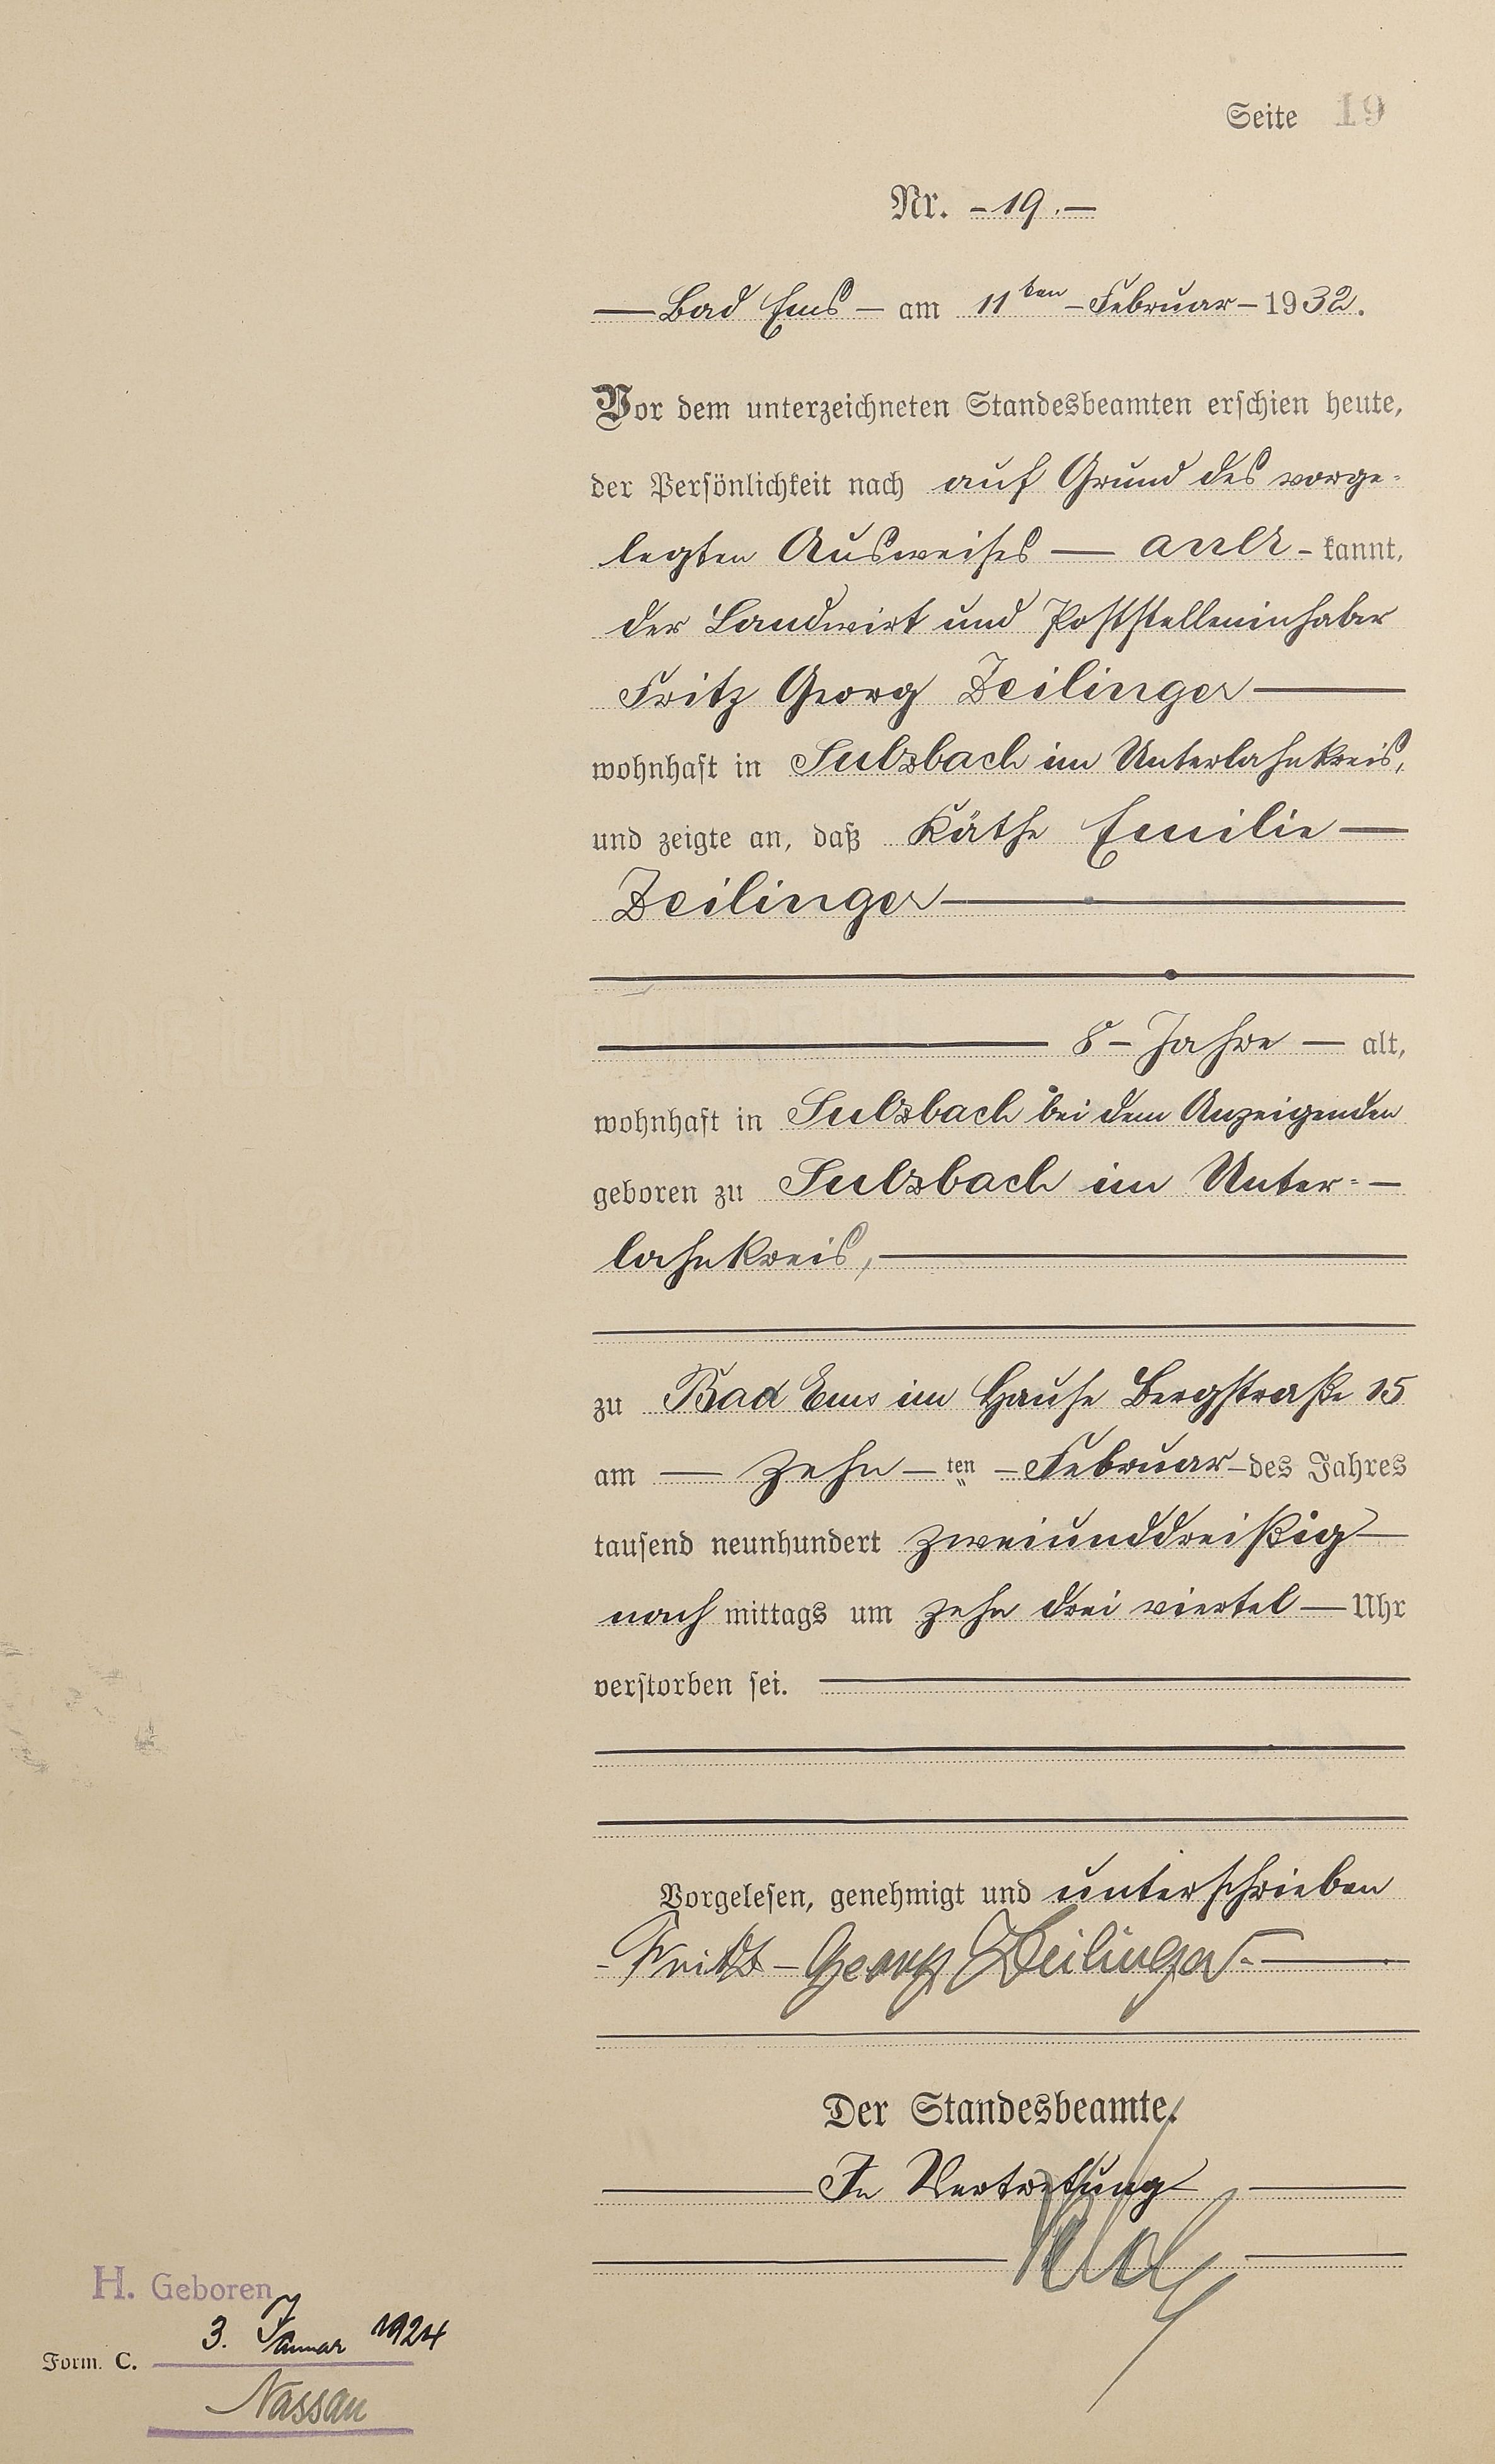 Seite 19
Nr. - 19. -
— Bad Ems — am 11ten - Februar - 1932.
Vor dem unterzeichneten Standesbeamten erschien heute,
der Persönlichkeit nach auf Grund des vorge-
legten Ausweises — aner - kannt,
der Landwirt und Poststelleninhaber
Fritz Georg Zeilinger —
wohnhaft in Sulzbach im Unterlahnkreis,
und zeigte an, daß Käthe Emilie —
Zeilinger —
— 8 - Jahre — alt,
wohnhaft in Sulzbach bei dem Anzeigenden
geboren zu Sulzbach im Unter- —
lahnkreis, —
zu Bad Ems im Hause Bergstraße 15
am — zehn - ten - Februar - des Jahres
tausend neunhundert zweiunddreißig —
nach mittags um zehn drei viertel — Uhr
verstorben sei. —
Vorgelesen, genehmigt und unterschrieben
- Fritz - Georg Zeilinger. —
Der Standesbeamte.
— In Vertretung —
H. Geboren
3. Januar 1924
Form. C.
Nassau